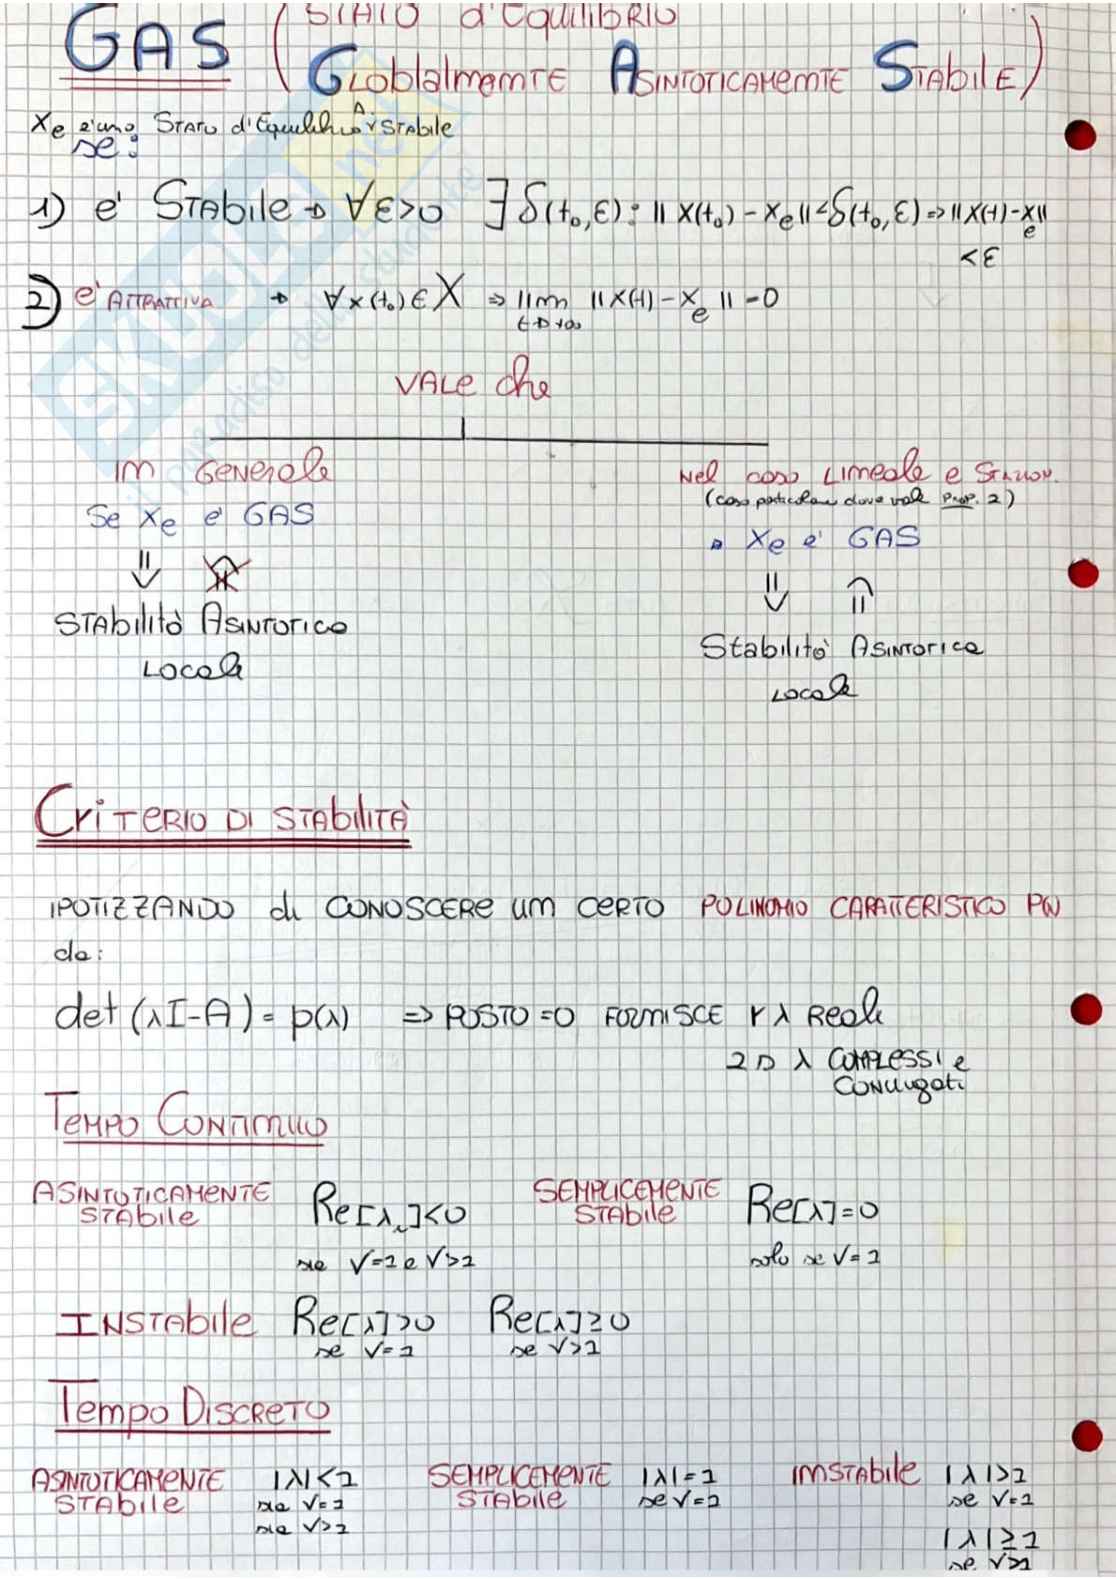 STATO d'EQUILIBRIO
GAS ( GLOBLALMENTE ASINTOTICAMENTE STABILE)
Xe è uno STATO d'Equilibrio A. STABILE
se:
1) e' STABILE → ∀ε>0 ∃ δ(t₀,ε): || X(t₀) - Xe || < δ(t₀,ε) => || X(t) - Xe ||
< ε
2) e' ATTRATTIVA → ∀ x(t₀) ∈ X => lim t→+∞ || X(t) - Xe || = 0
VALE che
IN GENERALE
Se Xe e' GAS
⇓ ⇑
STABILITÀ ASINTOTICA
LOCALE
Nel caso LINEARE e STAZION.
(caso particolare dove vale PROP. 2)
Xe e' GAS
⇓ ⇑
Stabilità ASINTOTICA
LOCALE
CRITERIO DI STABILITÀ
IPOTIZZANDO di CONOSCERE UN CERTO POLINOMIO CARATTERISTICO P(λ)
da:
det (λI-A) = p(λ) => POSTO =0 FORNISCE r λ Reali
2 λ COMPLESSI e
CONIUGATI
TEMPO CONTINUO
ASINTOTICAMENTE STABILE Re[λi]<0
sia V=1 e V>1
SEMPLICEMENTE STABILE Re[λ]=0
solo se V=1
INSTABILE Re[λ]>0 Re[λ]≥0
se V=1 se V>1
TEMPO DISCRETO
ASINTOTICAMENTE STABILE |λ|<1
sia V=1
sia V>1
SEMPLICEMENTE STABILE |λ|=1
se V=1
INSTABILE |λ|>1
se V=1
|λ|≥1
se V>1